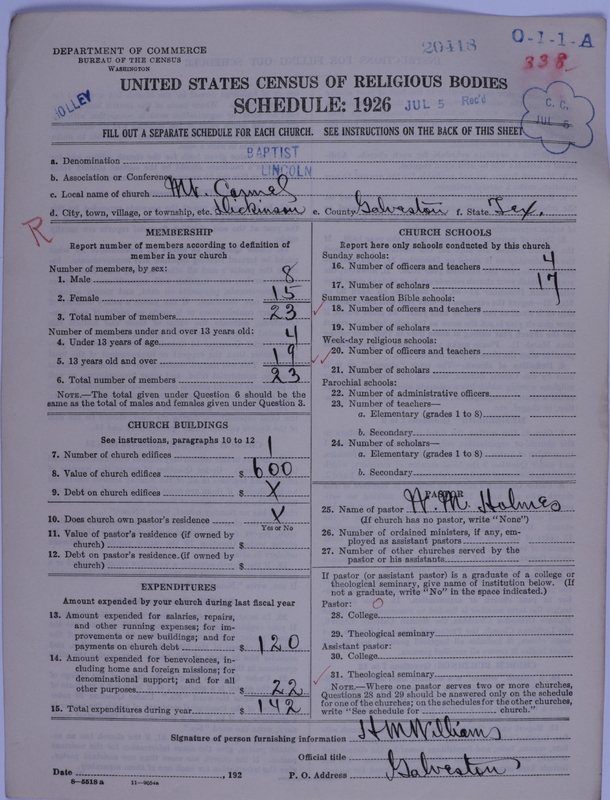 DEPARTMENT OF COMMERCE
BUREAU OF THE CENSUS
WASHINGTON
20418
0-1-1-A
338
UNITED STATES CENSUS OF RELIGIOUS BODIES
HOLLEY
SCHEDULE: 1926
JUL 5 Rec'd
C. C.
JUL 5
FILL OUT A SEPARATE SCHEDULE FOR EACH CHURCH. SEE INSTRUCTIONS ON THE BACK OF THIS SHEET
a. Denomination BAPTIST
b. Association or Conference LINCOLN
c. Local name of church Mt. Carmel
d. City, town, village, or township, etc. Dickinson e. County Galveston f. State Tex.
R
MEMBERSHIP
Report number of members according to definition of member in your church
Number of members, by sex:
1. Male 8
2. Female 15
3. Total number of members 23
Number of members under and over 13 years old:
4. Under 13 years of age 4
5. 13 years old and over 19
6. Total number of members 23
NOTE.—The total given under Question 6 should be
same as the total of males and females given under Question 3.
CHURCH BUILDINGS
See instructions, paragraphs 10 to 12
7. Number of church edifices 1
8. Value of church edifices $ 600
9. Debt on church edifices $ X
10. Does church own pastor's residence X
Yes or No
11. Value of pastor's residence (if owned by
church) $
12. Debt on pastor's residence (if owned by
church) $
EXPENDITURES
Amount expended by your church during last fiscal year
13. Amount expended for salaries, repairs,
and other running expenses; for im-
provements or new buildings; and for
payments on church debt $ 120
14. Amount expended for benevolences, in-
cluding home and foreign missions; for
denominational support; and for all
other purposes $ 22
15. Total expenditures during year $ 142
CHURCH SCHOOLS
Report here only schools conducted by this church
Sunday schools:
16. Number of officers and teachers 4
17. Number of scholars 17
Summer vacation Bible schools:
18. Number of officers and teachers
19. Number of scholars
Week-day religious schools:
20. Number of officers and teachers
21. Number of scholars
Parochial schools:
22. Number of administrative officers
23. Number of teachers—
a. Elementary (grades 1 to 8)
b. Secondary
24. Number of scholars—
a. Elementary (grades 1 to 8)
b. Secondary
PASTOR
25. Name of pastor W. M. Holmes
(If church has no pastor, write "None")
26. Number of ordained ministers, if any, em-
ployed as assistant pastors
27. Number of other churches served by the
pastor or his assistants
If pastor (or assistant pastor) is a graduate of a college or
theological seminary, give name of institution below. (If
not a graduate, write "No" in the space indicated.)
Pastor: O
28. College
29. Theological seminary
Assistant pastor:
30. College
31. Theological seminary
NOTE.—Where one pastor serves two or more churches,
Questions 28 and 29 should be answered only on the schedule
for one of the churches; on the schedules for the other churches,
write "See schedule for church."
Signature of person furnishing information H M Williams
Official title
Date , 192 P. O. Address Galveston
8-5518 a